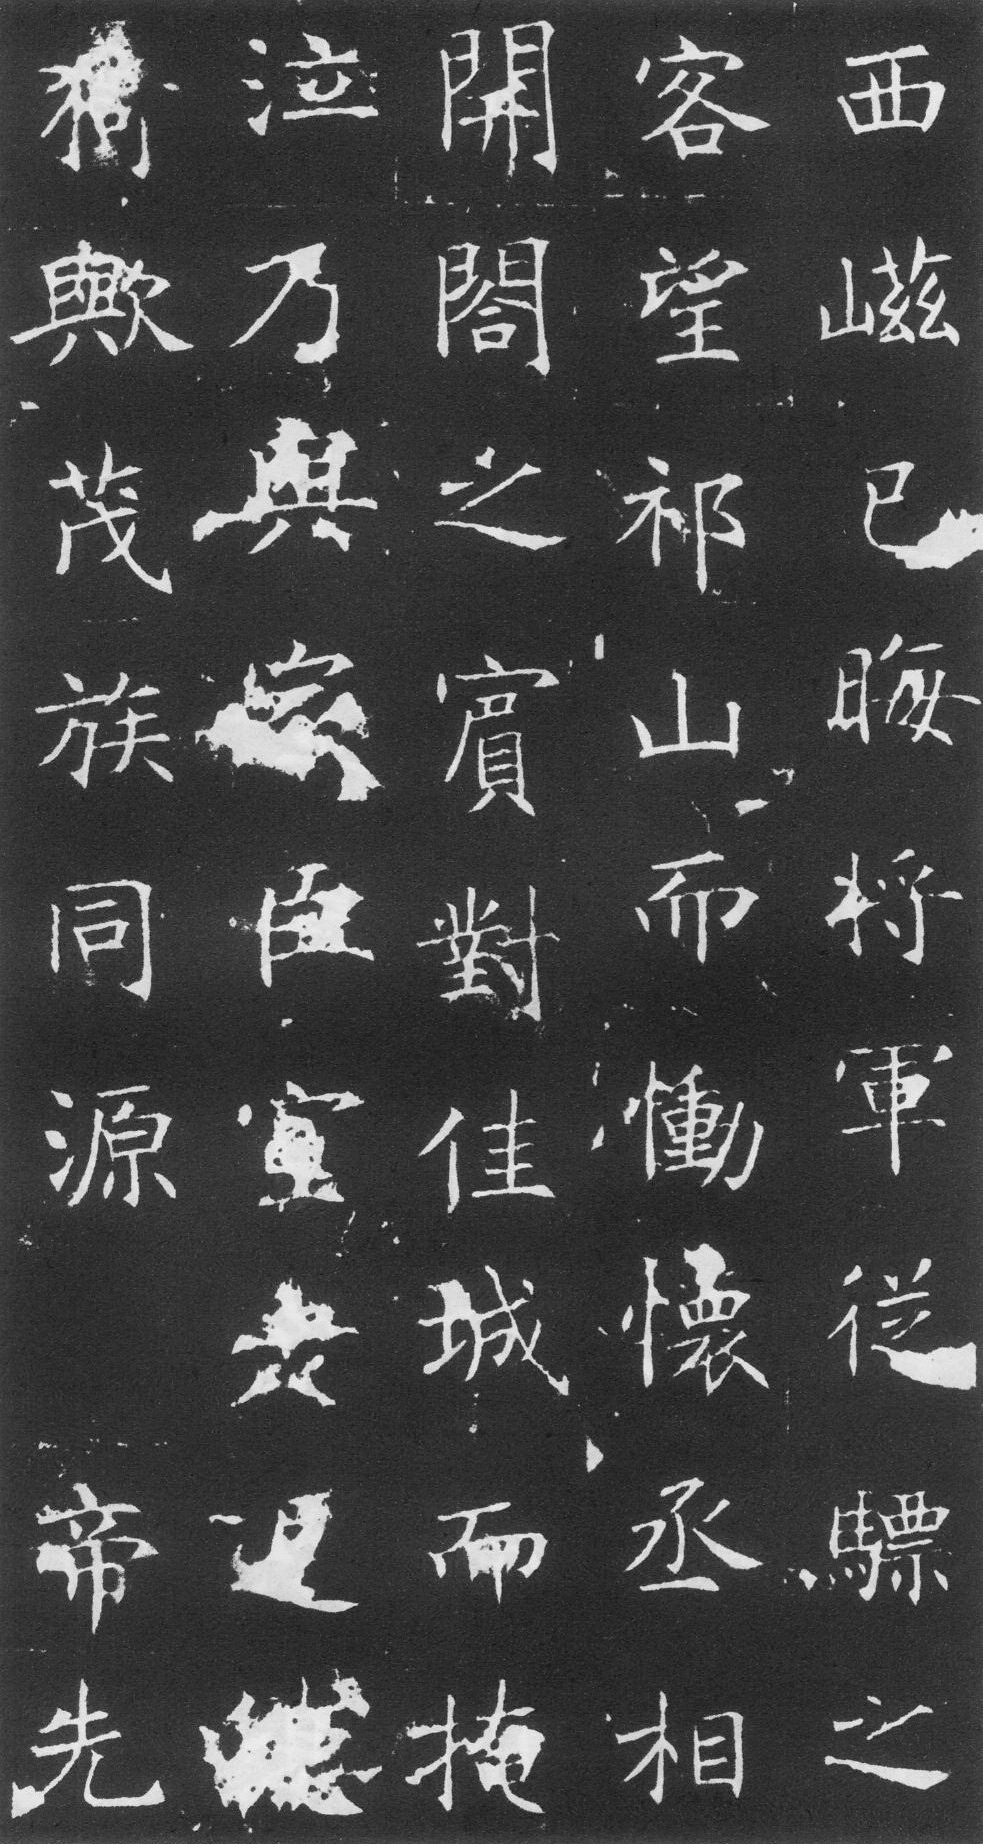 西嵫已晦將軍從驃之
客望祁山而慟懷丞相
開閤之賓對佳城而掩
泣乃與家臣室老追
猗歟茂族同源帝先